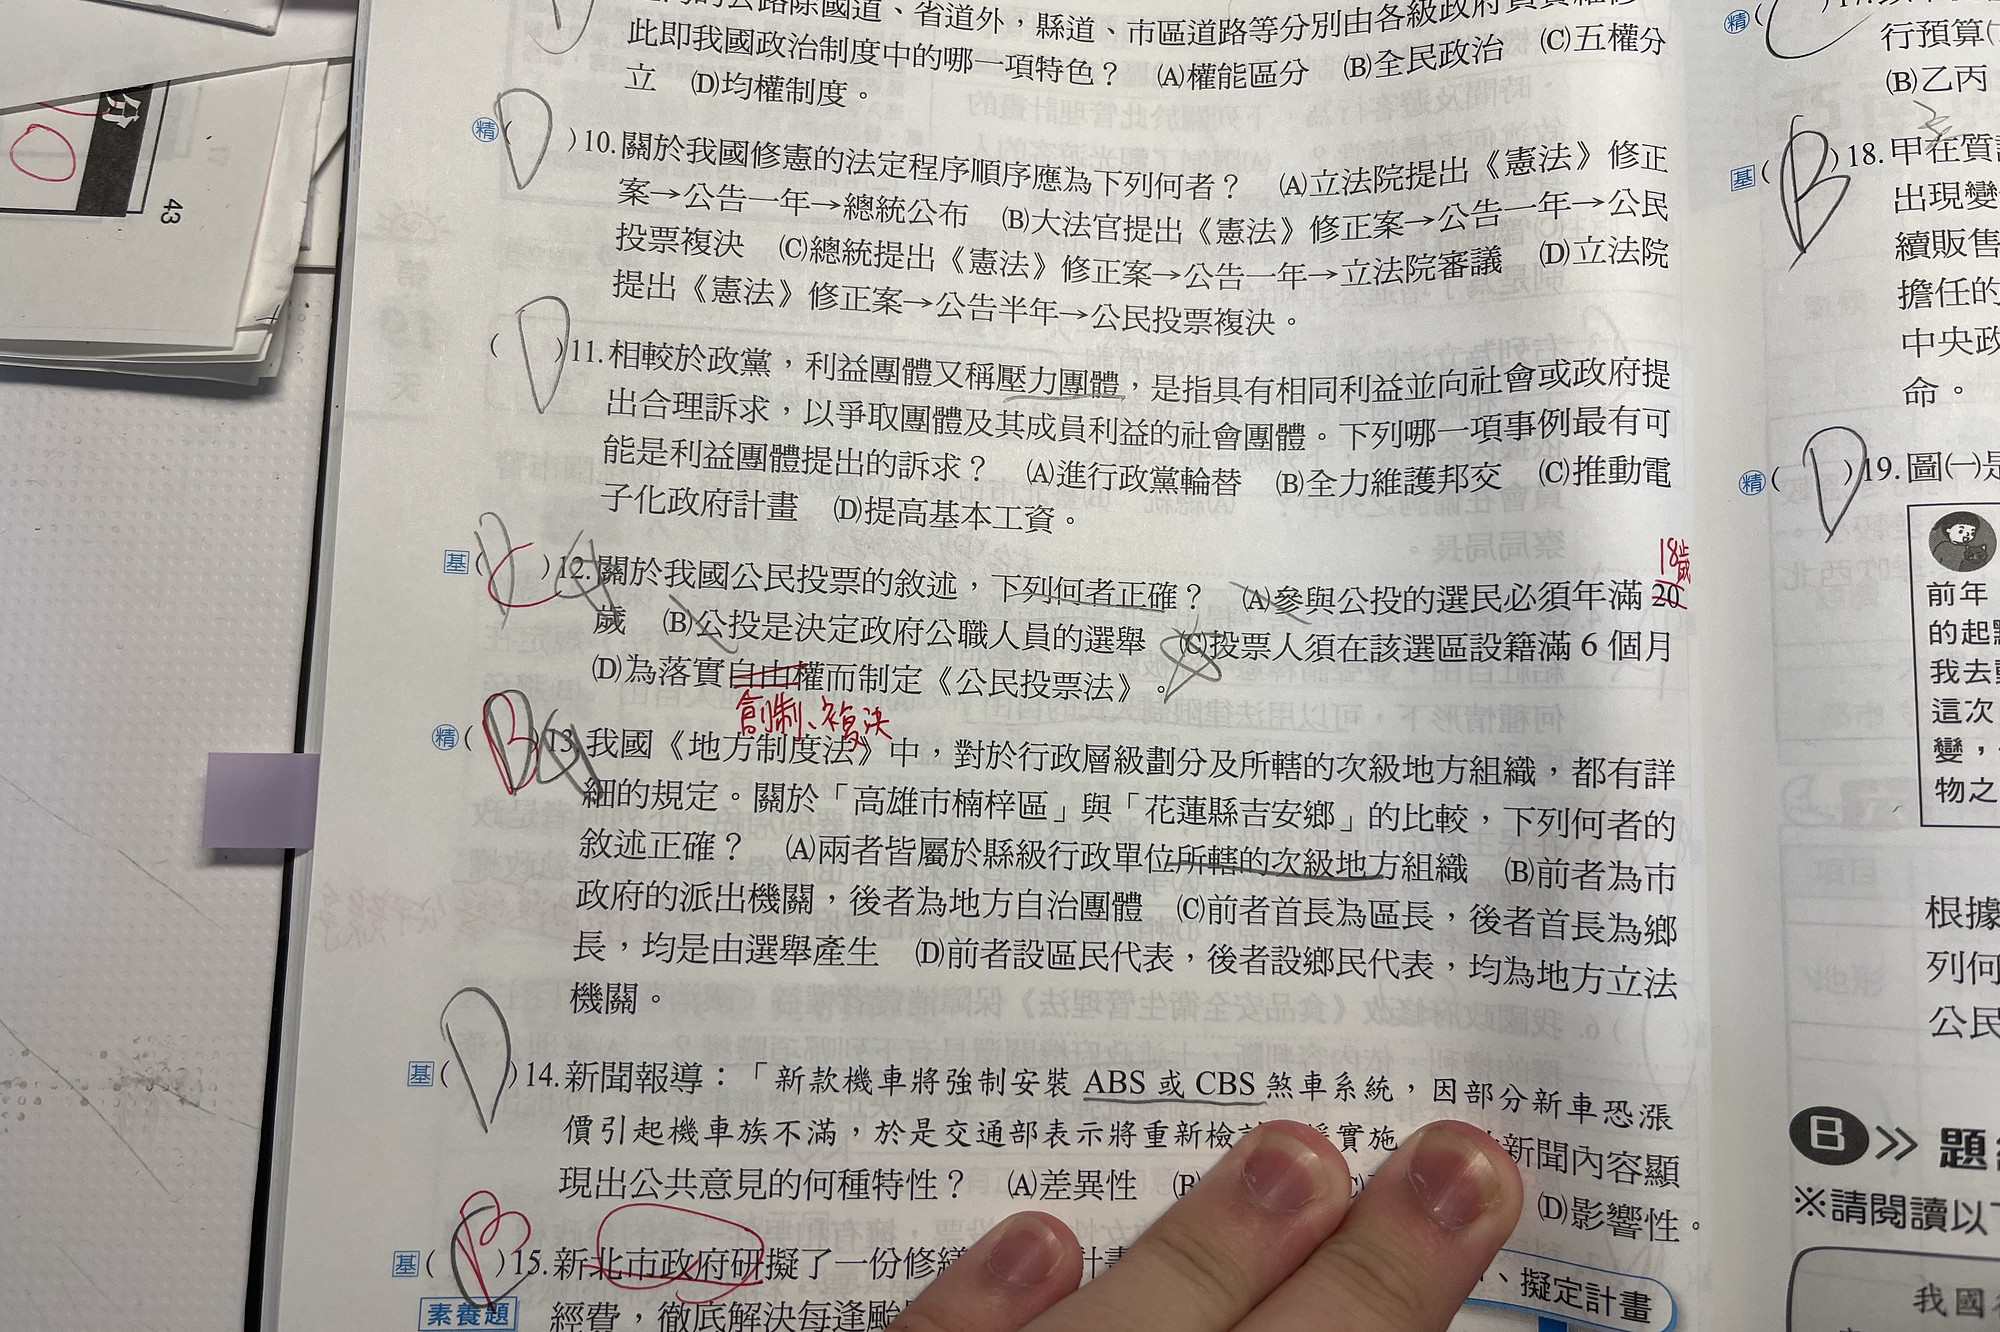 此即我國政治制度中的哪一項特色? (A)權能區分 (B)全民政治 (C)五權分
立 (D)均權制度。
精( D )10.關於我國修憲的法定程序順序應為下列何者? (A)立法院提出《憲法》修正
案→公告一年→總統公布 (B)大法官提出《憲法》修正案→公告一年→公民
投票複決 (C)總統提出《憲法》修正案→公告一年→立法院審議 (D)立法院
提出《憲法》修正案→公告半年→公民投票複決。
( D )11.相較於政黨,利益團體又稱壓力團體,是指具有相同利益並向社會或政府提
出合理訴求,以爭取團體及其成員利益的社會團體。下列哪一項事例最有可
能是利益團體提出的訴求? (A)進行政黨輪替 (B)全力維護邦交 (C)推動電
子化政府計畫 (D)提高基本工資。
18歲
基( C )12.關於我國公民投票的敘述,下列何者正確? (A)參與公投的選民必須年滿 20
歲 (B)公投是決定政府公職人員的選舉 (C)投票人須在該選區設籍滿 6 個月
(D)為落實自由權而制定《公民投票法》。
創制、複決
精( B )13.我國《地方制度法》中,對於行政層級劃分及所轄的次級地方組織,都有詳
細的規定。關於「高雄市楠梓區」與「花蓮縣吉安鄉」的比較,下列何者的
敘述正確? (A)兩者皆屬於縣級行政單位所轄的次級地方組織 (B)前者為市
政府的派出機關,後者為地方自治團體 (C)前者首長為區長,後者首長為鄉
長,均是由選舉產生 (D)前者設區民代表,後者設鄉民代表,均為地方立法
機關。
基( D )14.新聞報導:「新款機車將強制安裝 ABS 或 CBS 煞車系統,因部分新車恐漲
價引起機車族不滿,於是交通部表示將重新檢 實施 新聞內容顯
現出公共意見的何種特性? (A)差異性 (B (D)影響性。
基( B )15.新北市政府研擬了一份修繕 、擬定計畫
素養題 經費,徹底解決每逢颱
43
精(
行預算
(B)乙丙
基( B )18.甲在質
出現變
續販售
擔任的
中央政
命。
精( D )19.圖(一)是
前年
的起
我去
這次
變,
物之
根據
列何
公民
B 題
※請閱讀以下
我國